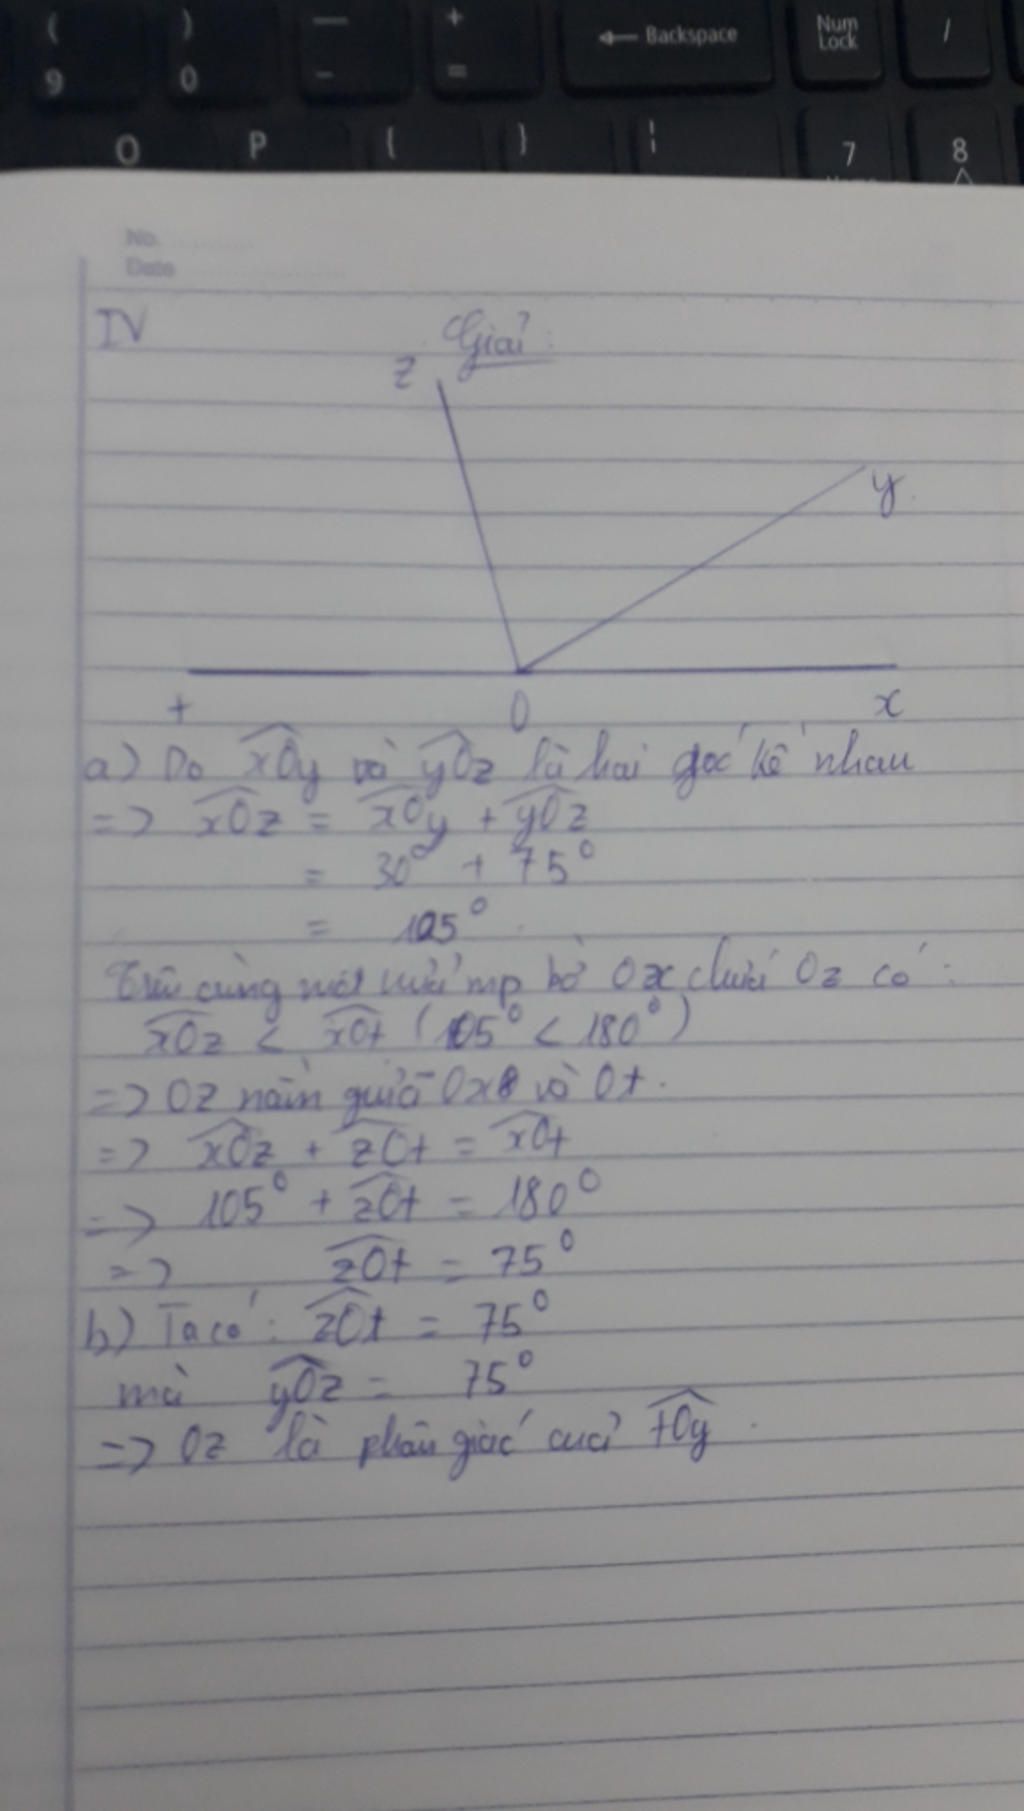 ( ) — + ← Backspace Num Lock /
9 0 - =
O P { } ¦ 7 8
No.
Date
IV Giải:
z
y
+ O x
a) Do xOy và yOz là hai góc kề nhau
=> xOz = xOy + yOz
= 30° + 75°
= 105°
Trên cùng một nửa mp bờ Ox chứa Oz có:
xOz < xOt (105° < 180°)
=> Oz nằm giữa Ox và Ot.
=> xOz + zOt = xOt
=> 105° + zOt = 180°
=> zOt = 75°
b) Ta có: zOt = 75°
mà yOz = 75°
=> Oz là phân giác của tOy.